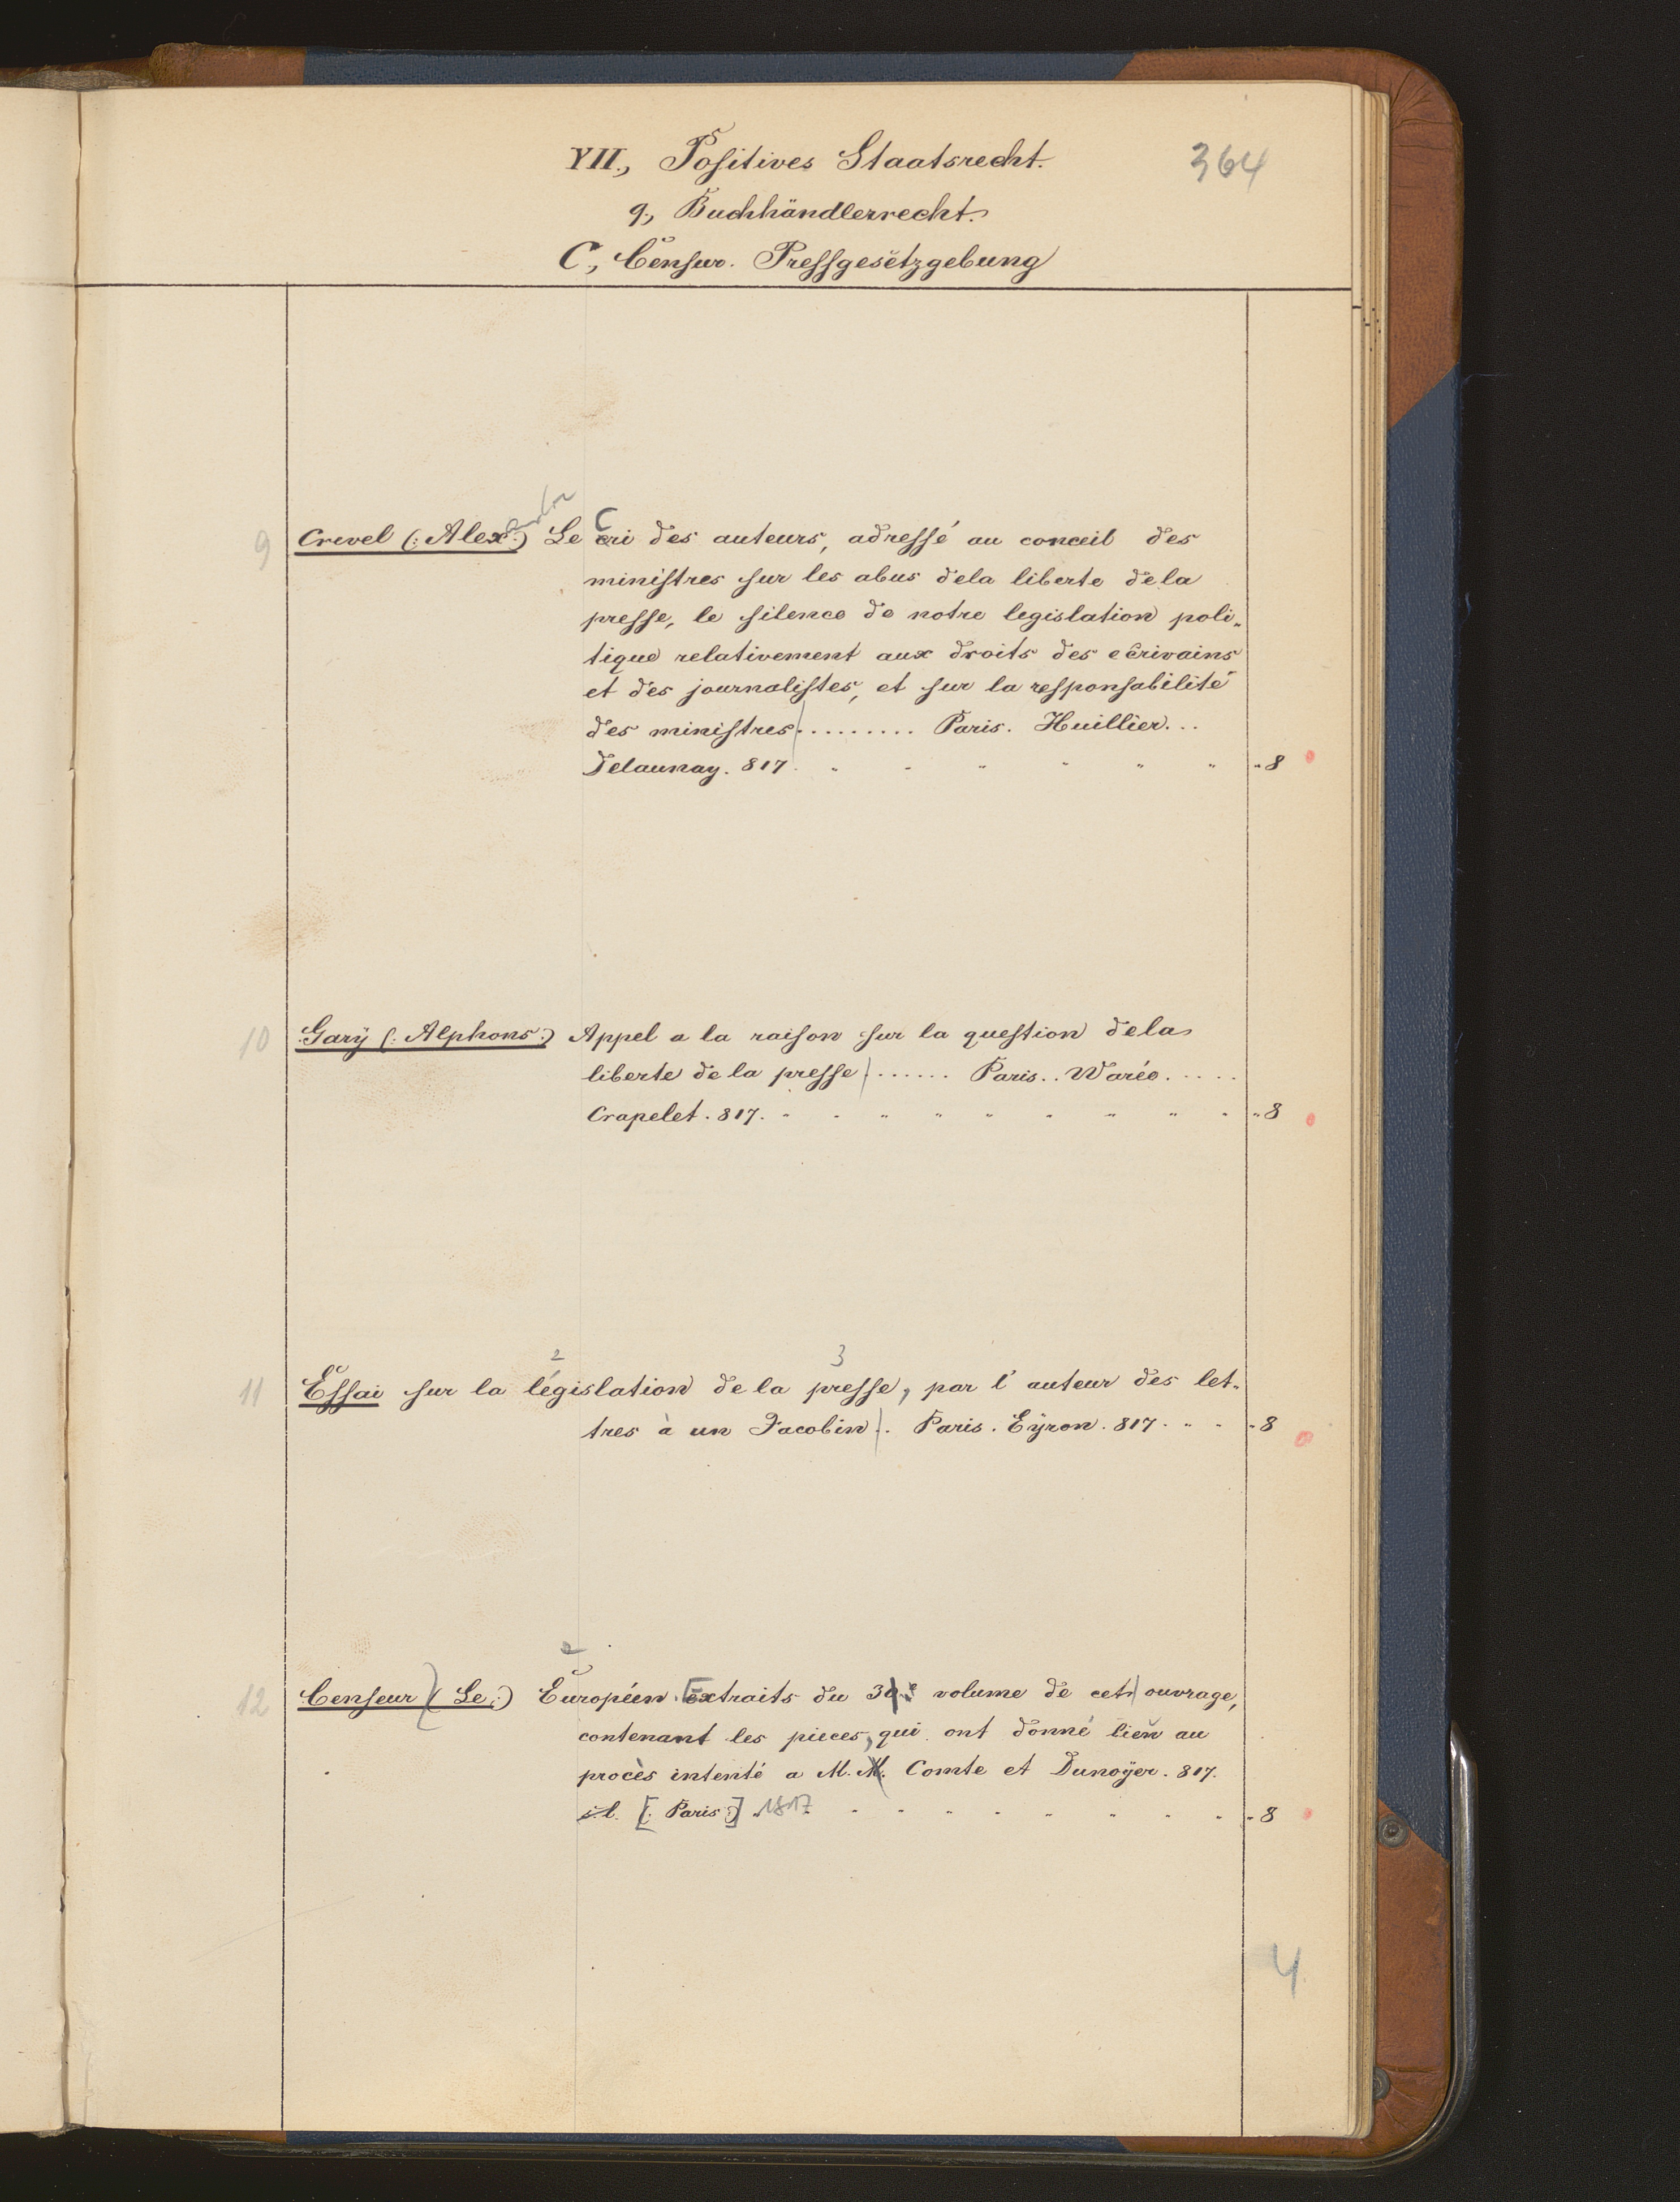 VII., Positives Staatsrecht. 364
q., Buchhändlerrecht.
C., Censur. Pressgesetzgebung
9 Crevel (: Alexander :) Le Cri des auteurs, adressé au conceil des
ministres sur les abus dela liberte dela
presse, le silence de notre legislation poli-
tique relativement aux droits des ecrivains
et des journalistes, et sur la responsabilité
des ministres ......... Paris. Huillier...
Delaunay. 817. " 8
10 Gary (: Alphons :) Appel a la raison sur la question dela
liberte de la presse ...... Paris.. Warée.....
Crapelet. 817. " 8
2 3
11 Essai sur la législation de la presse, par l'auteur des let-
tres à un Jacobin. Paris. Eyron. 817. " 8
2
12 Censeur (: Le :) Européen. Extraits du 3e volume de cet ouvrage,
contenant les pieces, qui ont donné lieu au
procès intenté a M. M. Comte et Dunoyer. 817.
s. l. [: Paris :] 1817 " 8
4